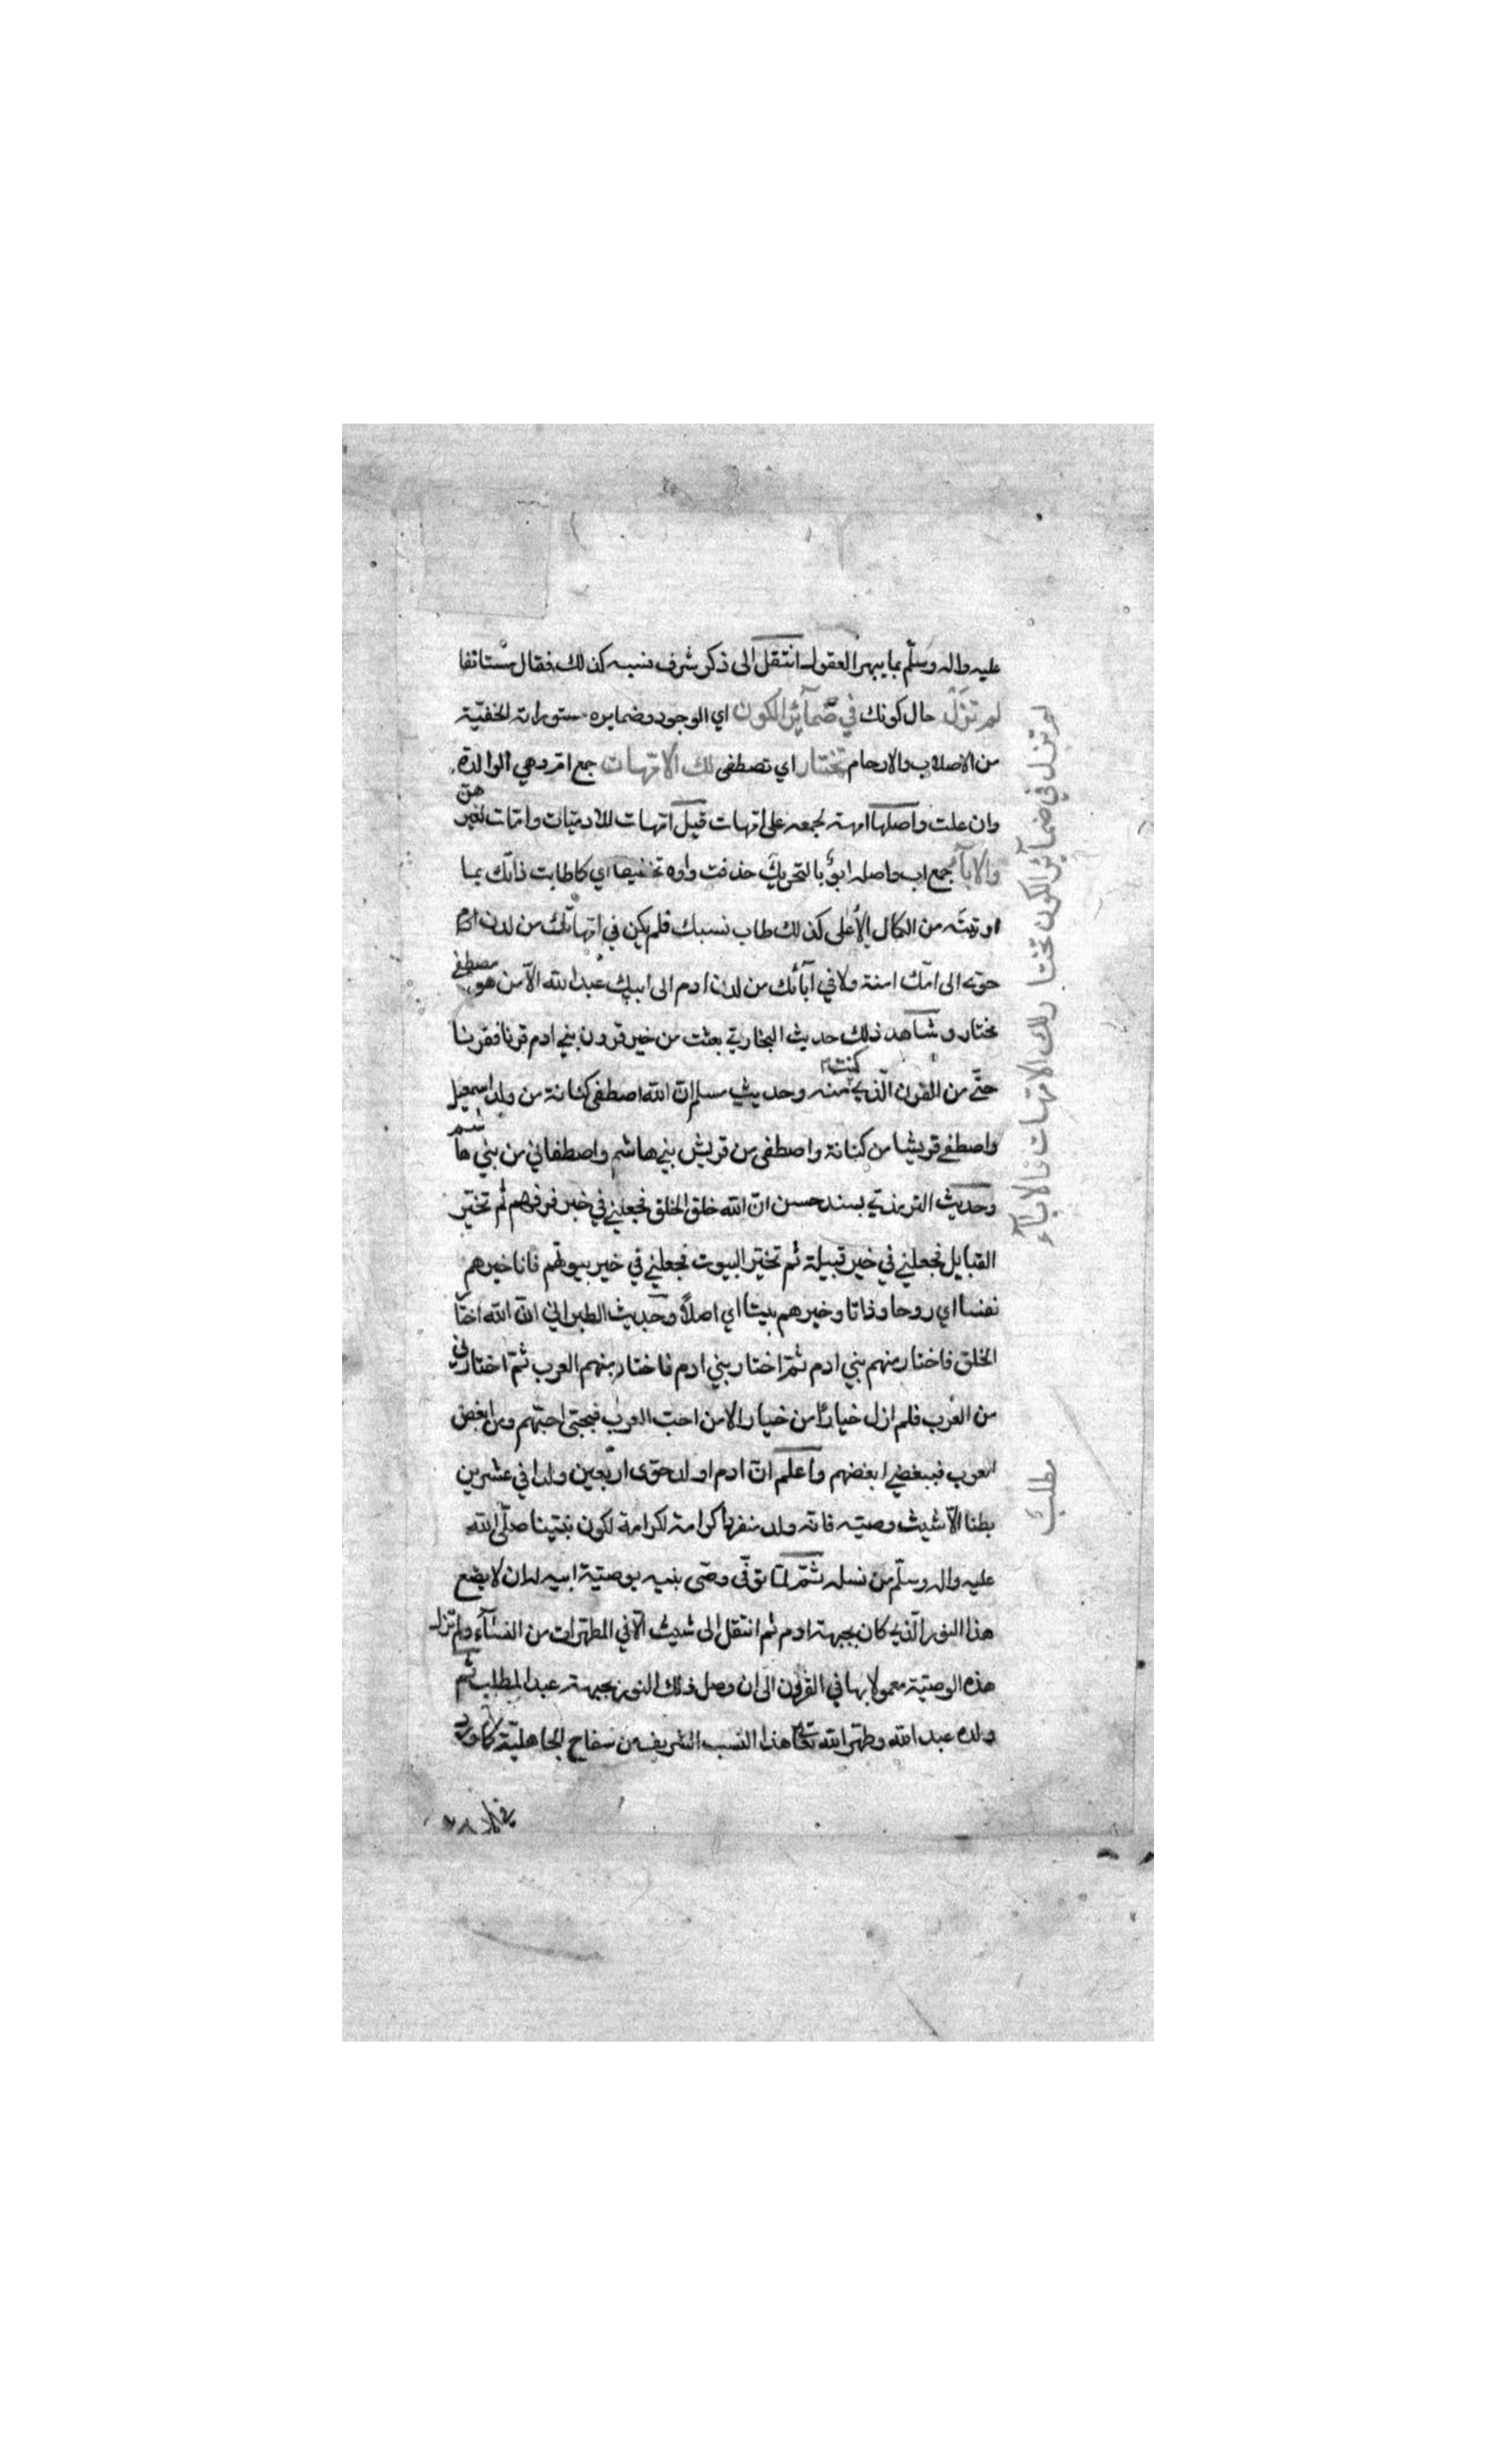 عليه واله وسلّم بما يبهر العقول انتقل الى ذكر شرف نسبه كذلك فقال مستانفا
لم تزل حال كونك في ضمآئر الكون اي الوجود وضمايره مستوراته الخفيّة
من الاصلاب والارحام تختار اي تصطفى لك الامّهات جمع امّ وهي الوالدة
وان علت واصلها امهة لجمعه على امّهات قيل امّهات للادميّات وامّات لغيرهنّ
والابآء جمع اب واصله ابوٌ بالتحريك حذفت واوه تخفيفا اي كما طابت ذاتك بما
اوتيته من الكمال الاعلى كذلك طاب نسبك فلم يكن في امّهاتك من لدن امّ
حوّى الى امّك امنة ولا في آبائك من لدن ادم الى ابيك عبد الله الّا من هو مصطفى
مختار وشاهد ذلك حديث البخاري بعثت من خير قرون بني ادم قرنا فقرنا
حتّى من القرن الّذي كنت منه وحديث مسلم انّ الله اصطفى كنانة من ولد اسمعيل
واصطفى قريشا من كنانة واصطفى من قريش بني هاشم واصطفاني من بني هاشم
وحديث الترمذي بسند حسن انّ الله خلق الخلق فجعلني في خير فرقهم ثم تخيّر
القبايل فجعلني في خير قبيلة ثم تخيّر البيوت فجعلني في خير بيوتهم فانا خيرهم
نفسا اي روحا وذاتا وخيرهم بيتا اي اصلاً وحديث الطبراني انّ الله اختار
الخلق فاختار منهم بني ادم ثمّ اختار بني ادم فاختار منهم العرب ثمّ اختارني
من العرب فلم ازل خيارًا من خيار الا من احبّ العرب فبحبّى احبّهم ومن ابغض
العرب فببغضي ابغضهم واعلم انّ ادم اولد حوّى اربعين ولدا في عشرين
بطنا الّا شيث وصيّه فانّه ولد منفردا كرامة لكون نبيّنا صلّى الله
عليه واله وسلّم من نسله ثمّ لمّا توفّى وصّى بنيه بوصيّة ابيه له ان لا يضع
هذا النور الّذي كان بجبهة ادم ثم انتقل الى شيث الّا في المطهّرات من النسآء ولم تزل
هذه الوصيّة معمولا بها في القرون الى ان وصل ذلك النور بجبهة عبد المطلب ثم
ولده عبد الله وطهّر الله تعالى هذا النسب الشريف من سفاح الجاهليّة كما ورد
لم تزل في ضمآئر الكون تختا رلك الامّهات والابآء
مطلب